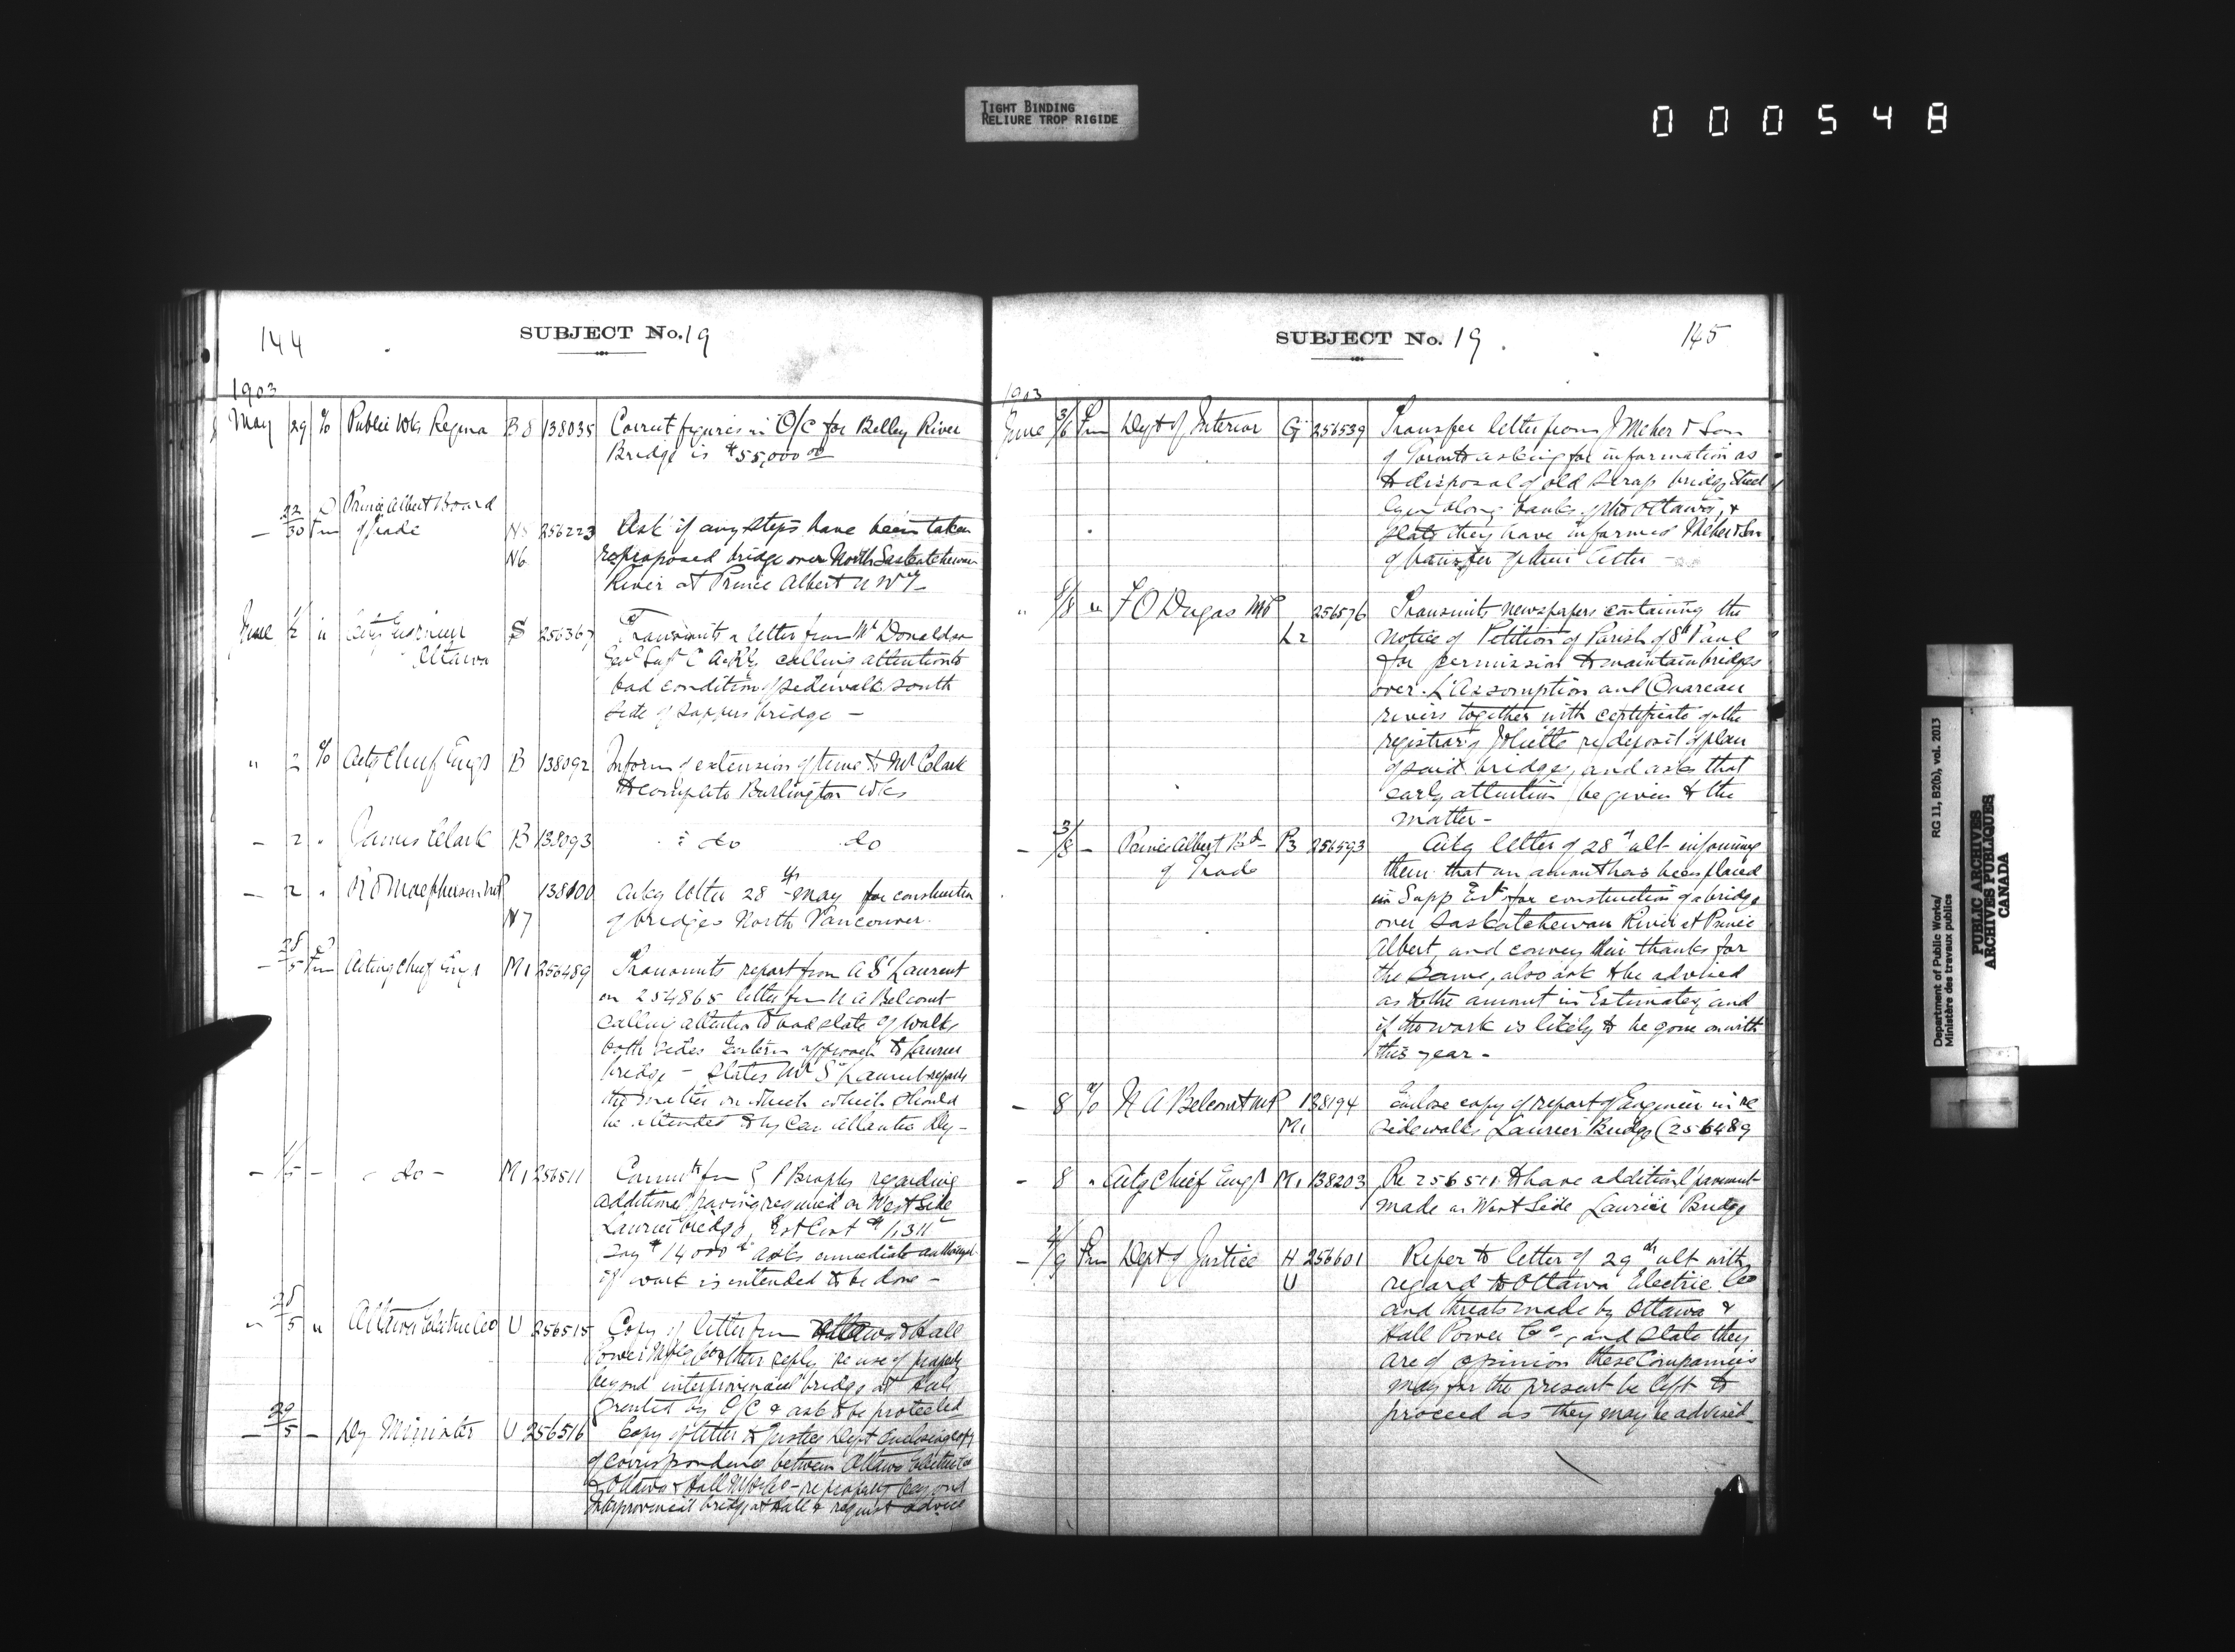 TIGHT BINDING
RELIURE TROP RIGIDE
000548
144
SUBJECT No. 19
1903
May 29 % Public Wks Regina B8 138035 Correct figures in O/C for Belley River
Bridge is $55,000 00
Prince Albert Board
22/30 Fm of Trade N8 256223 Ask if any steps have been taken
N6 re proposed bridge over North Saskatchewan
River at Prince Albert N W T
June 1/2 " City Engineer S 256367 Transmits a letter from Mr Donaldson
Ottawa Genl Supt C A Ry calling attention to
bad condition of sidewalk south
side of Sappers bridge -
" 2 % Actg Chief Engr B 138092 Inform of extension of time to Mr Clark
to complete Burlington Wks
- 2 " James Clark B 138093 " do do
- 2 " R G Macpherson MP 138100 Ackg letter 28th May for construction
N7 of bridges North Vancouver.
- 28/5 Fm Acting Chief Engr M1 256489 Transmits report from A St Laurent
on 254865 letter fm N A Belcourt
calling attention to bad state of walks
both sides Eastern approach to Laurier
bridge - States Mr St Laurent reports
the matter on which which should
be attended to by Can Atlantic Rly -
- 1/5 - - do - M1 256511 Commn fm G P Brophy regarding
additional paving required on West Side
Laurier bridge, Est Cost $1,311
Say $14 000 asks immediate
if work is intended to be done -
" 28/5 " Ottawa Electric Co U 256515 Copy of letter from Ottawa & Hull
Power Mfg Co & their reply re use of property
beyond interprovincial bridge at Hull
granted by O/C & ask to be protected
- 29/5 - Dy Minister U 256516 Copy of letter to Justice Dept enclosing copy
of correspondence between Ottawa Electric Co
& Ottawa & Hull Mfg Co - re property beyond
Interprovincial bridge at Hull & request advice
SUBJECT No. 19.
145
1903
June 3/6 Fm Dept of Interior G 256539 Transfer letter from J Meher & Son
of Toronto asking for information as
to disposal of old scrap bridge Steel
lying along banks of the Ottawa, &
state they have informed Meher & Son
of transfer of their letter -
" 5/8 " F O Dugas MP 256576 Transmits newspapers containing the
L2 notice of Petition of Parish of St Paul
for permission to maintain bridges
over L'Assomption and Ouareau
rivers together with certificate of the
registrar of Joliette re deposit of plan
of said bridges, and asks that
early attention be given to the
matter -
- 3/8 - Prince Albert Bd P3 256593 Ackg letter of 28th ult informing
of Trade them that an amount has been placed
in Supp Est for construction of a bridge
over Saskatchewan River at Prince
Albert, and convey their thanks for
the same, also ask to be advised
as to the amount in Estimates, and
if the work is likely to be gone on with
this year -
- 8 % N A Belcourt MP 138194 Enclose copy of report of Engineer in re
M1 sidewalks Laurier Bridge (256489
- 8 " Actg Chief Engr M1 138203 Re 256511 to have additional pavement
made on West Side Laurier Bridge
- 4/9 Fm Dept of Justice H 256601 Refer to letter of 29th ult with
U regard to Ottawa Electric Co
and threats made by Ottawa &
Hull Power Co -, and state they
are of opinion these Companies
may for the present be left to
proceed as they may be advised
Department of Public Works/
Ministère des travaux publics
RG 11, B2(b), vol. 2013
PUBLIC ARCHIVES
ARCHIVES PUBLIQUES
CANADA